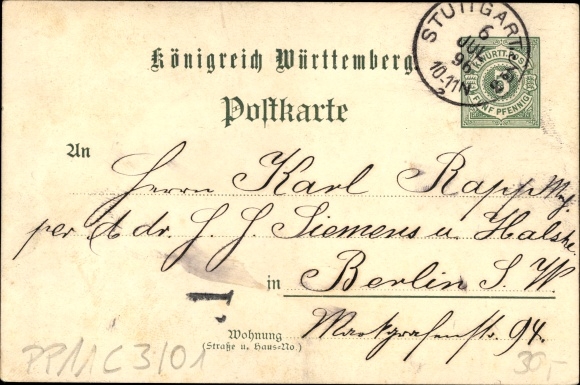 Königreich Württemberg.
Postkarte
STUTTGART
6
JUL
96
10-11N
K. WÜRTT. POST
5
FÜNF PFENNIG
An
Herrn Karl Rapp
per Adr. H. H. Siemens u. Halske
in Berlin S. W.
Wohnung
(Straße u. Haus=No.)
Markgrafenstr. 94.
PP11 C 3/01
30,-